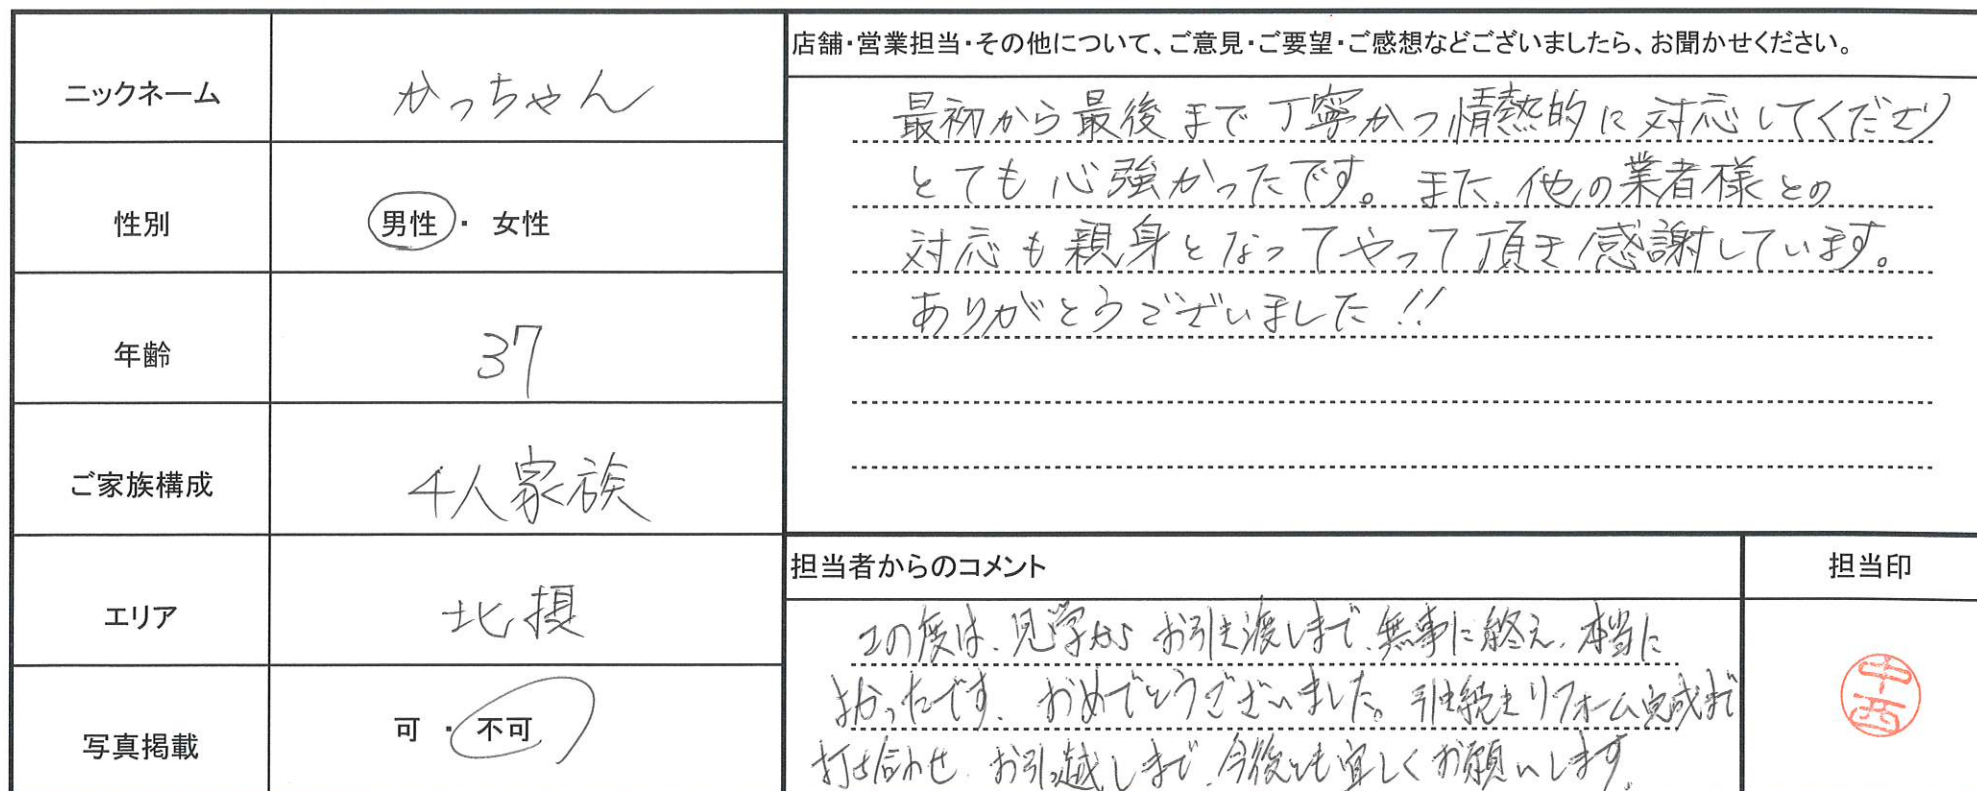 ニックネーム
かっちゃん
性別
男性・女性
年齢
37
ご家族構成
4人家族
エリア
北摂
写真掲載
可・不可
店舗・営業担当・その他について、ご意見・ご要望・ご感想などございましたら、お聞かせください。
最初から最後まで丁寧かつ情熱的に対応してくださり
とても心強かったです。また、他の業者様との
対応も親身となってやって頂き感謝しています。
ありがとうございました!!
担当者からのコメント
この度は、見学からお引き渡しまで、無事に終え、本当に
よかったです。おめでとうございました。引き続きリフォーム完成まで
打ち合わせ、お引越しまで、今後とも宜しくお願いします。
担当印
中西